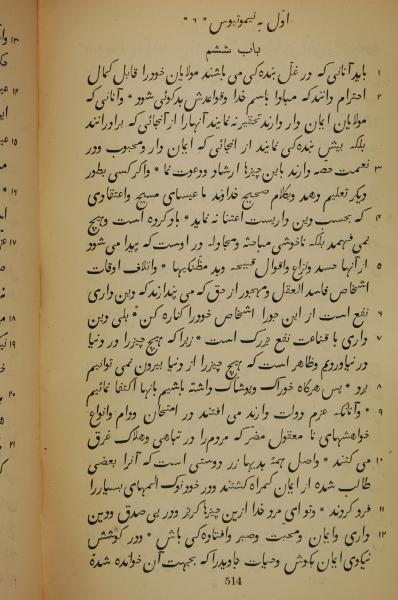 اوّل به تیموثیوس * ٦ *
باب ششم
١ باید آنانی که در غلّ بنده کی می باشند مولایان خود را قابل کمال
٢ احترام دانند که مبادا باسم خدا وقواعدش بد کوئی شود * وآنانی که
مولایان ایمان دار دارند تحقیر نه نمایند آنها را از آنجائی که برادرانند
بلکه بیش بنده کی نمایند از آنجائی که ایمان دار ومحبوب ودر
٣ نعمت حصّه دارند باین چیزها ارشاد ودعوت نما * واگر کسی بطور
دیگر تعلیم دهد وبکلام صحیح خداوند ما عیسای مسیح واعتقادی
٤ که بحسب دین داریست اعتنا نه نماید * باد کرده است وهیچ
نمی فهمد بلکه ناخوشی مباحثه ومجادله در اوست که پیدا می شود
٥ از آنها حسد ونزاع واقوال قبیحه وبد مظنکیها * واتلاف اوقات
اشخاص فاسد العقل ومهجور از حق که می پندارند که دین داری
٦ نفع است از این جورا اشخاص خود را کناره کن * بلی دین
٧ داری با قناعت نفع بزرک است * زیرا که هیچ چیز را در دنیا
در نیاوردیم وظاهر است که هیچ چیز را از دنیا بیرون نمی توانیم
٨ برد * پس هرکاه خوراک وپوشاک داشته باشیم بآنها اکتفا نمائیم
٩ * وآنانکه عزم دولت دارند می افتند در امتحان ودام وانواع
خواهشهای نا معقول مضر که مردم را در تباهی وهلاک غرق
١٠ می کنند * واصل همهٔ بدیها زر دوستی است که آنرا بعضی
طالب شده از ایمان کمراه کشتند ودر خود نوک المهای بسیار را
١١ فرو کردند * وتو ای مرد خدا ازین چیزها کریز ودر پی صدق ودین
١٢ داری وایمان ومحبت وصبر وافتاده کی باش * ودر کوشش
نیکوی ایمان بکوش وحیات جاوید را که بجهت آن خوانده شدهٔ
514